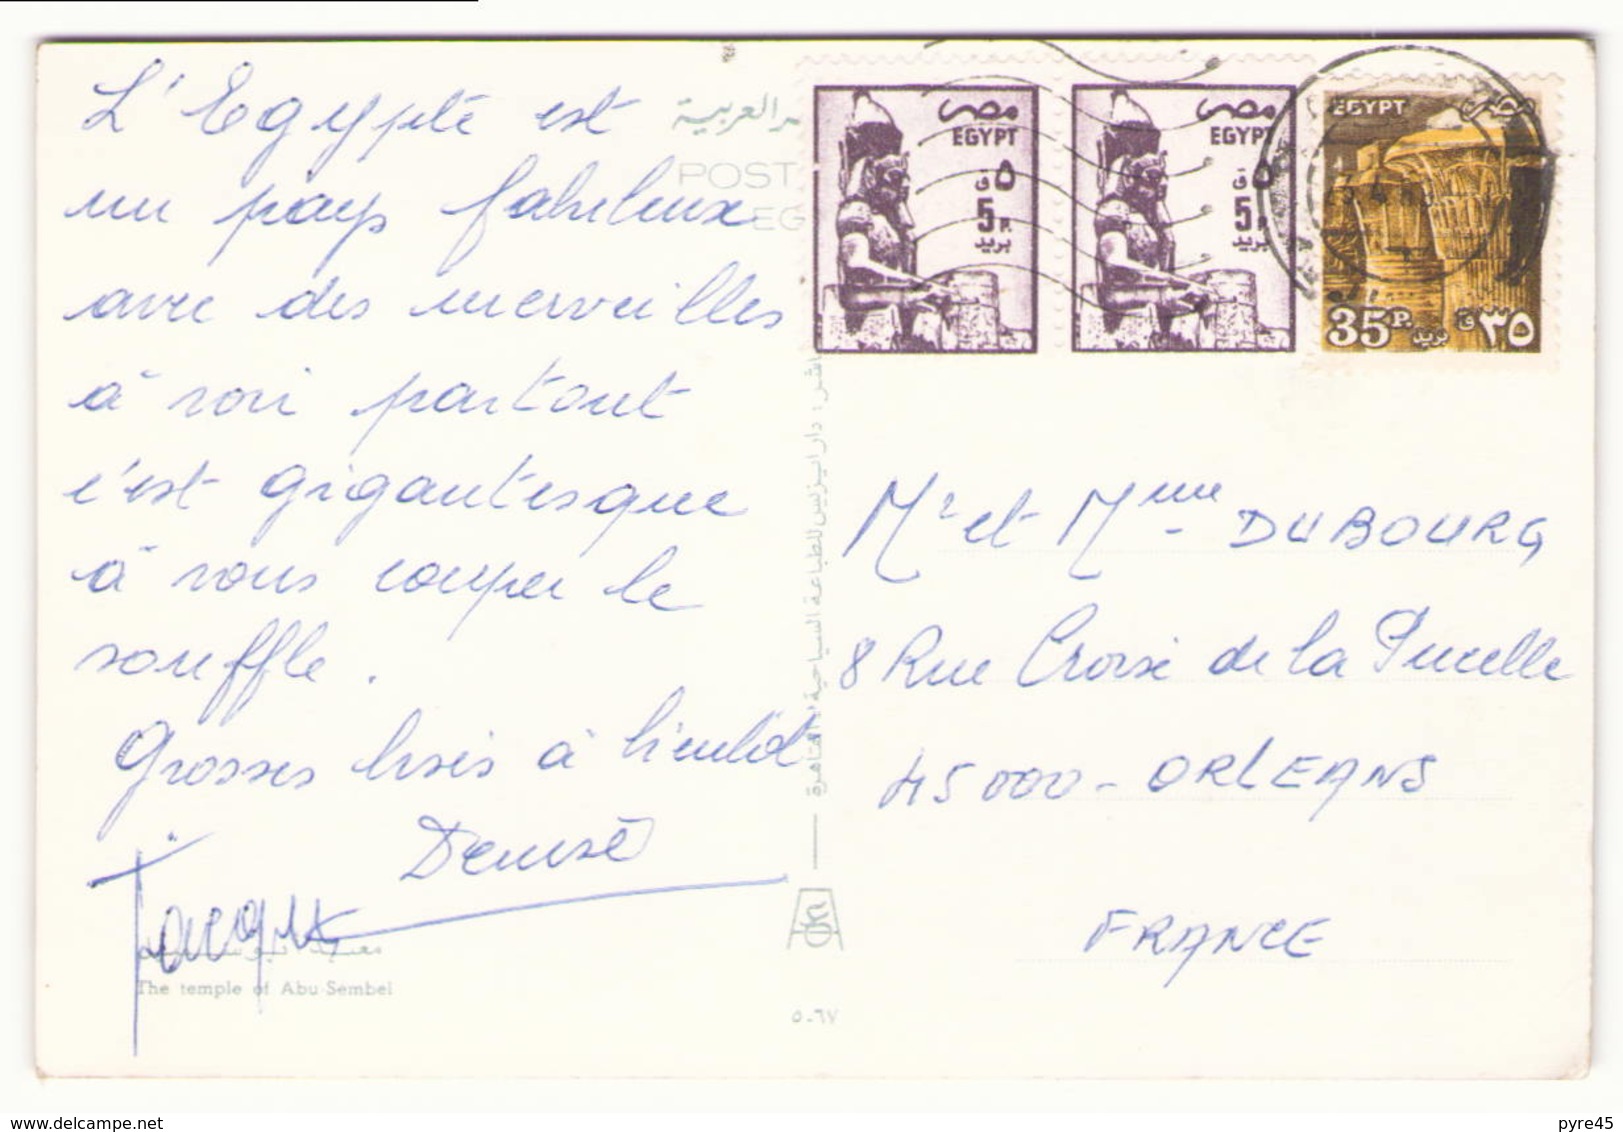 L'Egypte est
un pays fabuleux
avec des merveilles
à voir partout
c'est gigantesque
à vous couper le
souffle.
Grosses bises à bientôt
Denise
Jacques
The temple of Abu Sembel
العربية
POST
EG
دار ايزيس للطباعة السياحية
٥-٦٧
مصر
EGYPT
٥ ق
5 P.
بريد
مصر
EGYPT
٥ ق
5 P.
بريد
EGYPT مصر
35 P. بريد ٣٥ ق
Mr et Mme DUBOURG
8 Rue Croix de la Pucelle
45000 - ORLEANS
FRANCE
www.delcampe.net
pyre45